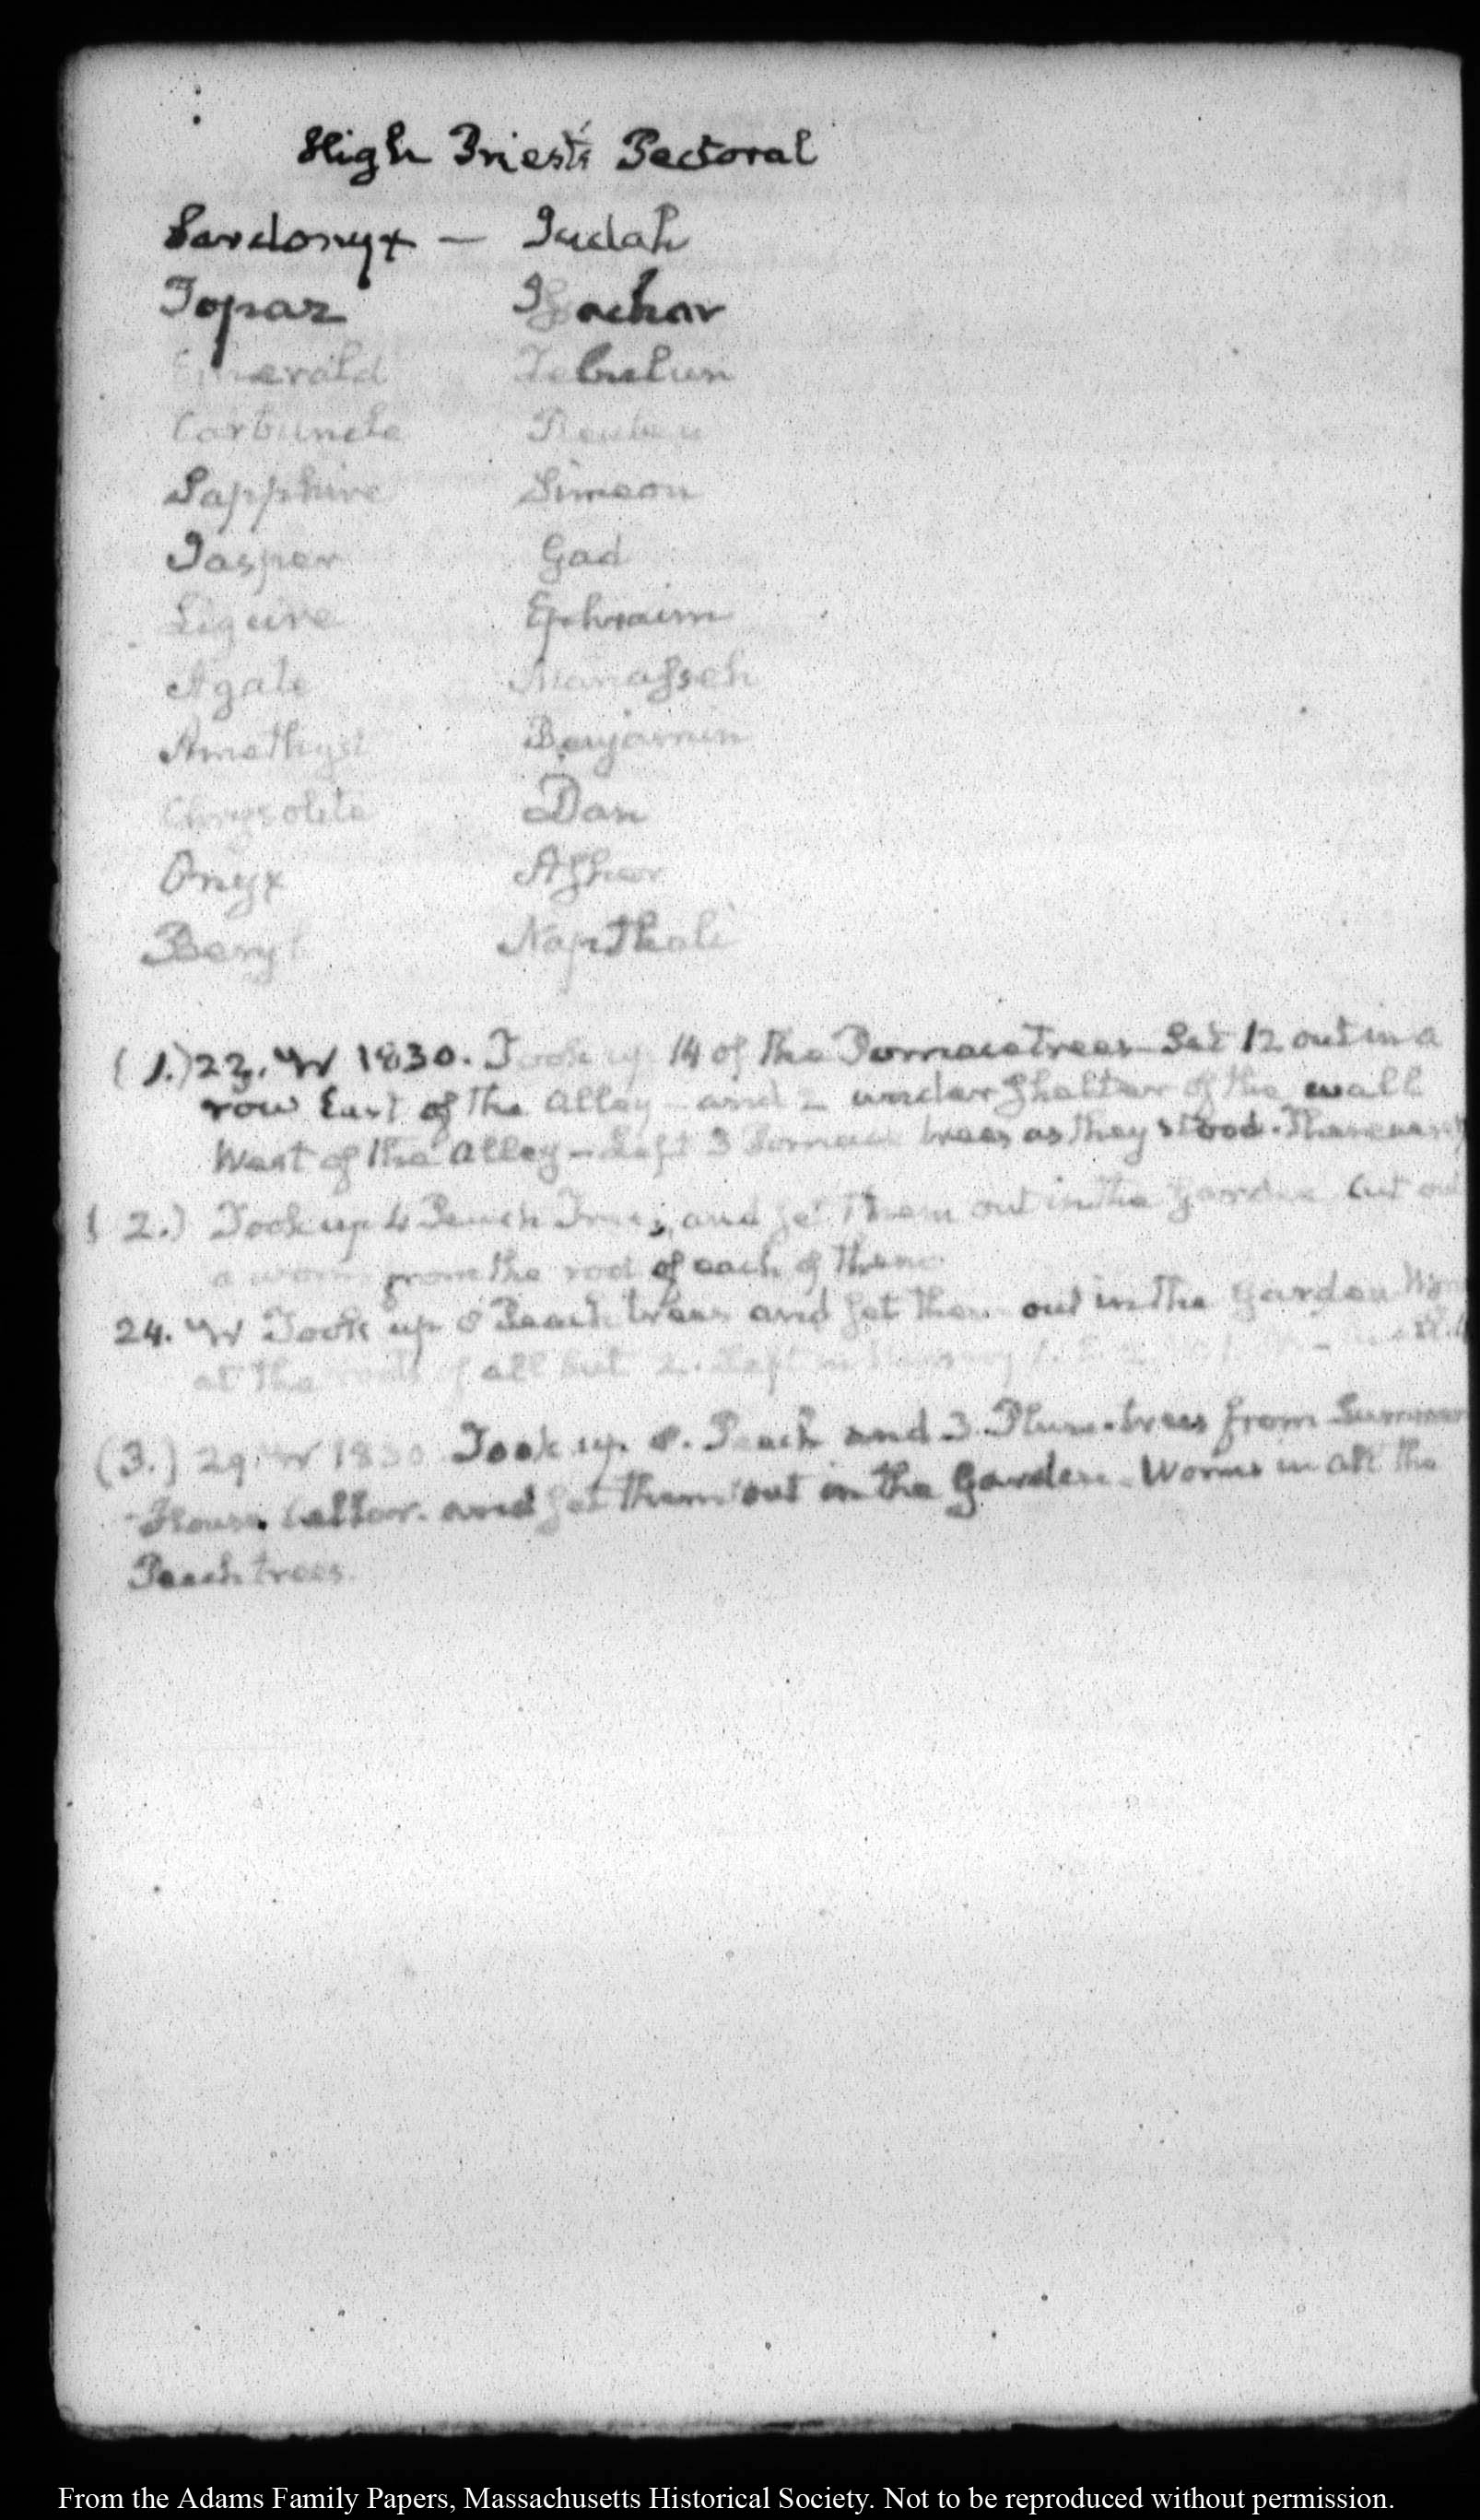 High Priest's Pectoral
Sardonyx — Judah
Topaz Issachar
Emerald Zebulun
Carbuncle Reuben
Sapphire Simeon
Jasper Gad
Ligure Ephraim
Agate Manasseh
Amethyst Benjamin
Chrysolite Dan
Onyx Asher
Beryl Napthali
(1.) 22. IV 1830. Took up 14 of the Pomace trees Set 12 out in a
row East of the Alley – and 2 under shelter of the wall
West of the Alley – Left 3 Pomace trees as they stood.
(2.) Took up 4 Peach Trees, and set them out in the Garden Cut out
a worm from the root of each of them
24. IV Took up 8 Peach trees and set them out in the Garden
at the roots of all but 2. Left in
(3.) 29. IV 1830 Took up 8. Peach and 3. Plum-trees from Summer
House Cellar. and set them out in the Garden. Worms in all the
Peach trees.
From the Adams Family Papers, Massachusetts Historical Society. Not to be reproduced without permission.